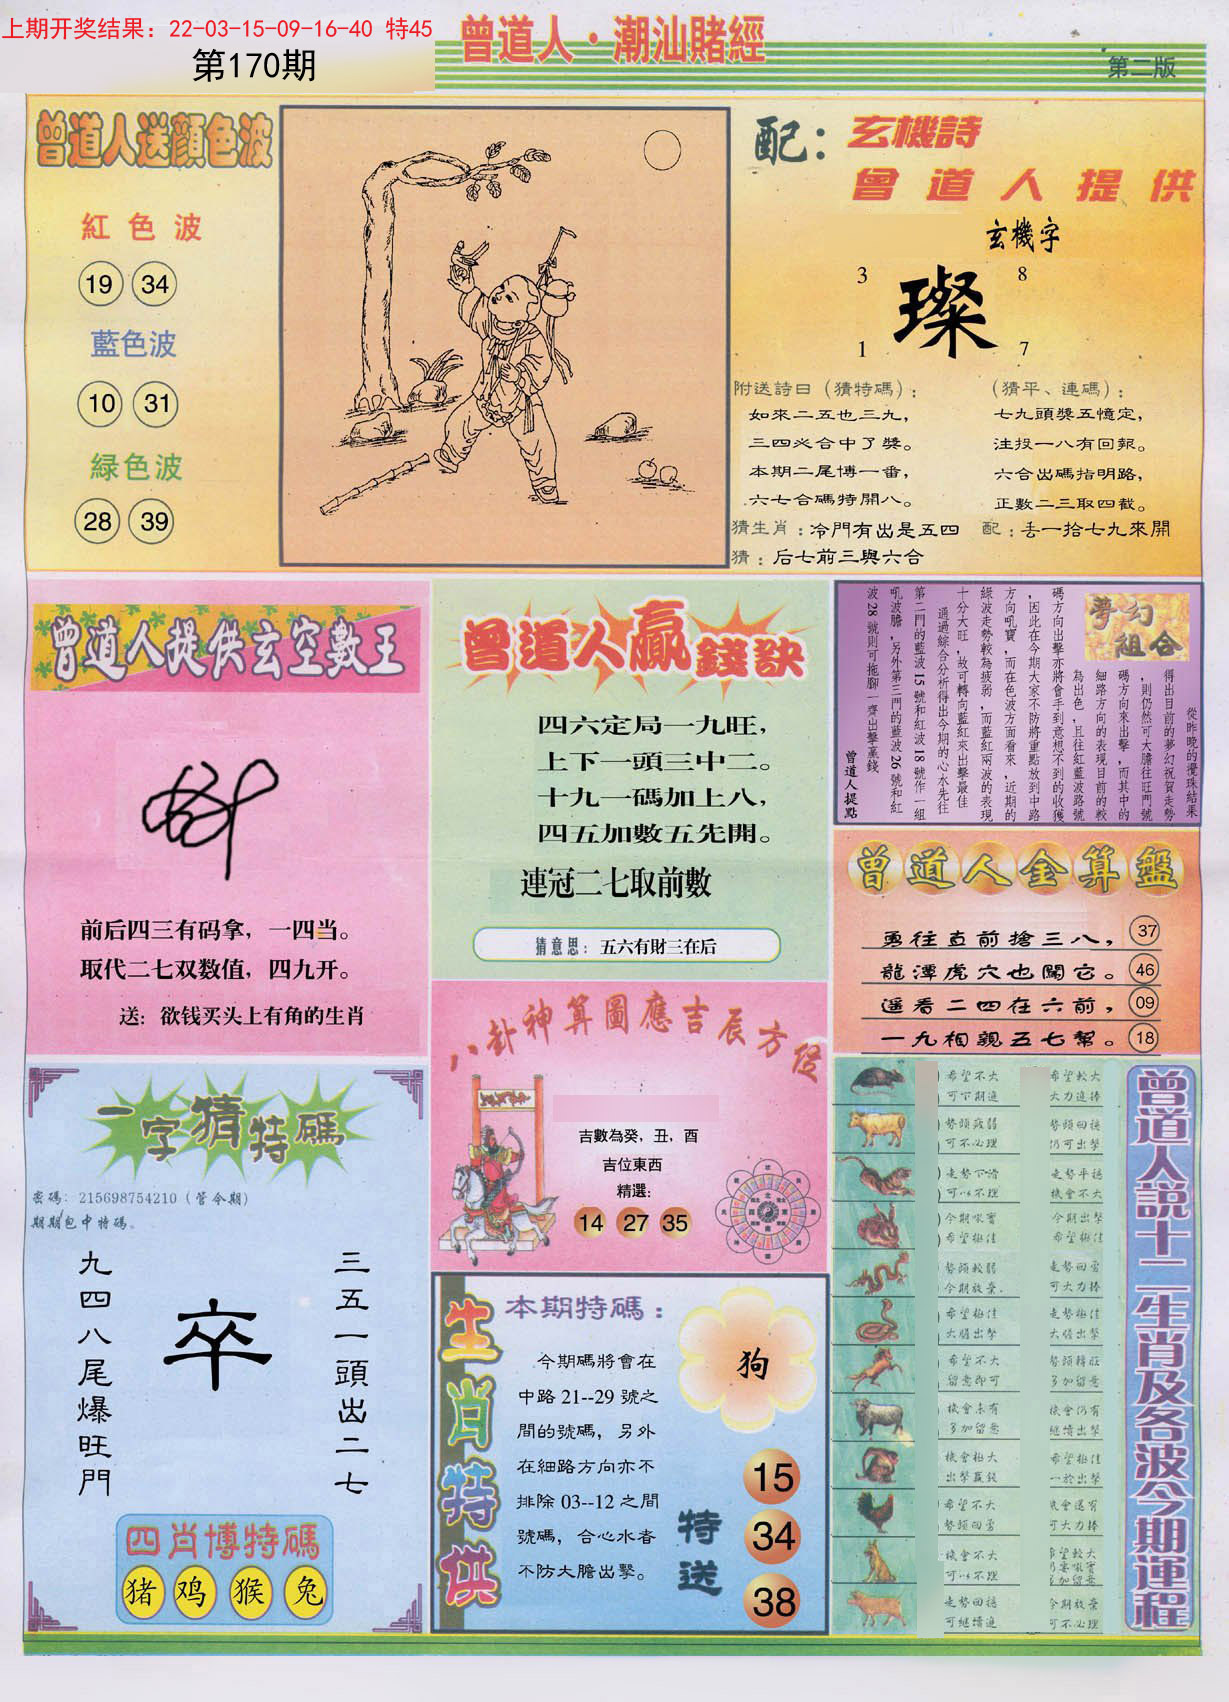 上期开奖结果：22-03-15-09-16-40 特45
第170期
曾道人·潮汕賭經
第二版
曾道人送顏色波
紅色波
19 34
藍色波
10 31
緑色波
28 39
配：玄機詩
曾道人提供
玄機字
3 8
璨
1 7
附送詩曰（猜特碼）：
如來二五也三九，
三四必合中了獎。
本期二尾博一番，
六七合碼特開八。
（猜平、連碼）：
七九頭獎五憶定，
注投一八有回報。
六合出碼指明路，
正數二三取四截。
猜生肖：冷門有出是五四
配：丢一拾七九來開
猜：后七前三與六合
曾道人提供玄空數王
前后四三有码拿，一四当。
取代二七双数值，四九开。
送：欲钱买头上有角的生肖
曾道人贏錢訣
四六定局一九旺，
上下一頭三中二。
十九一碼加上八，
四五加數五先開。
連冠二七取前數
猜意思：五六有財三在后
夢幻組合
從昨晚的攪珠結果
得出目前的夢幻祝賀走勢
，則仍然可大膽往旺門號
碼方向來出擊，而其中的
細路方向的表現目前的較
為出色，且往紅藍波路號
碼方向出擊亦將會手到意想不到的收獲
，因此在今期大家不防將重點放到中路
方向吼寶，而在色波方面看來，近期的
綠波走勢較為疲弱，而藍紅兩波的表現
十分大旺，故可轉向藍紅來出擊最佳
通過綜合分析得出今期的心水先往
第二門的藍波15號和紅波18號作一組
吼波膽，另外第三門的藍波26號和紅
波28號則可拖腳一齊出擊贏錢
曾道人提點
曾道人金算盤
勇往直前搶三八， 37
龍潭虎穴也闖它。 46
遥看二四在六前， 09
一九相親五七幫。 18
一字猜特碼
密碼：215698754210（管今期）
期期包中特碼。
九四八尾爆旺門
卒
三五一頭出二七
四肖博特碼
猪 鸡 猴 兔
八卦神算圖應吉辰方位
吉數為癸，丑，酉
吉位東西
精選：
14 27 35
生肖特供
本期特碼：
今期碼將會在
中路21--29號之
間的號碼，另外
在細路方向亦不
排除03--12之間
號碼，合心水者
不防大膽出擊。
狗
特送
15
34
38
曾道人説十二生肖及各波今期運程
希望不大
可下期進
希望較大
大力追捧
勢頭疲弱
可不必理
勢頭回穩
仍可出擊
走勢下滑
可以不理
走勢平穩
機會不大
今期吼寶
希望極佳
今期出擊
希望極佳
勢頭較弱
今期放棄.
走勢回勇
可大力捧
希望極佳
大膽出擊
走勢極佳
大膽出擊
希望不大
留意即可
勢頭轉旺
多加留意
機會未有
多加留意
機會仍有
繼續出擊
機會極大
出擊贏錢
希望極佳
一於出擊
希望不大
勢頭回勇
可大力捧
機會不大
可以不理
走勢回穩
可繼續進
今期放棄
可不必理